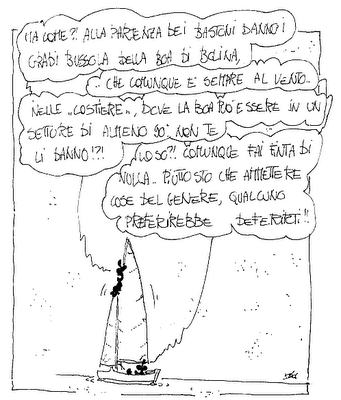 MA COME?! ALLA PARTENZA DEI BASTONI DANNO I
GRADI BUSSOLA DELLA BOA DI BOLINA,
.. CHE COMUNQUE E' SEMPRE AL VENTO..
NELLE "COSTIERE", DOVE LA BOA PUO' ESSERE IN UN
SETTORE DI ALMENO 90° NON TE
LI DANNO!?!
LO SO?! COMUNQUE FAI FINTA DI
NULLA.. PIUTTOSTO CHE AMMETTERE
COSE DEL GENERE, QUALCUNO
PREFERIREBBE